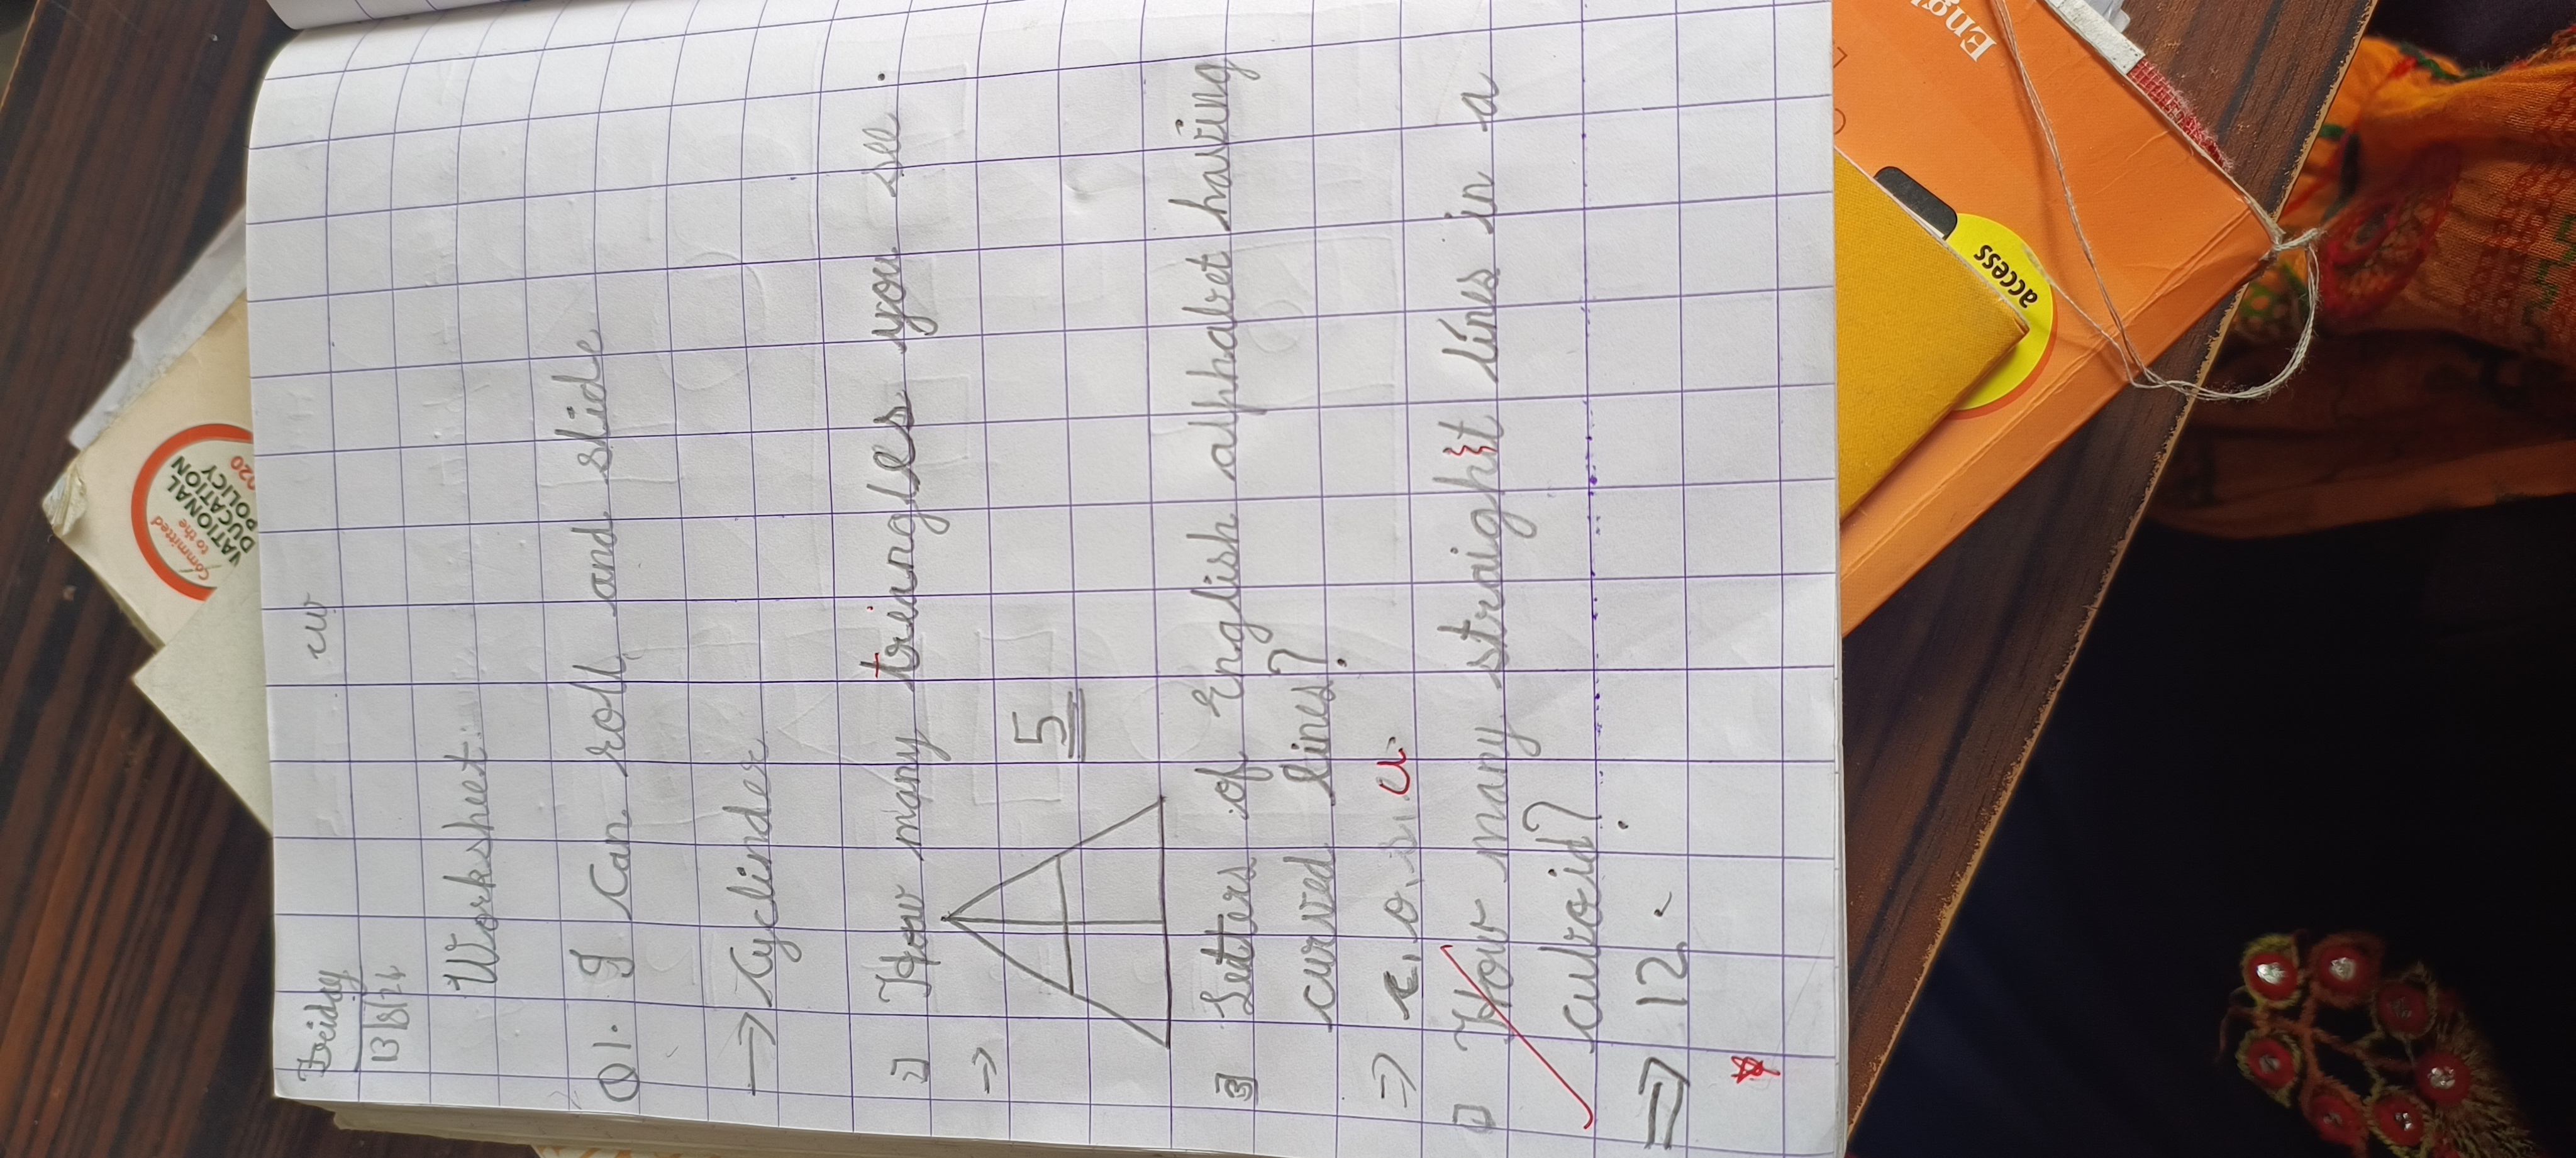 Friday
cw
13/8/24
Worksheet:
Q1. I can roll and slide
→ Cyclinder
2] How many triangles you see.
⇒
5
3] Letters of English alphabet having
curved lines?
⇒ c, o, s, u.
How many straight lines in a
cuboid?
⇒ 12.
Committed
to the
NATIONAL
EDUCATION
POLICY
2020
access
Engl